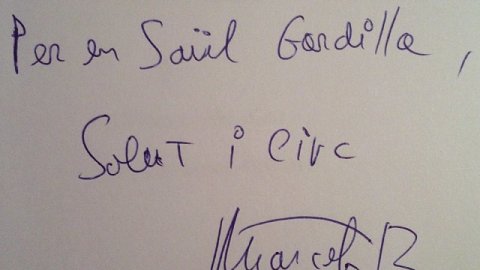 Per en Saül Gordillo,
Salut i circ
Marcel·lí